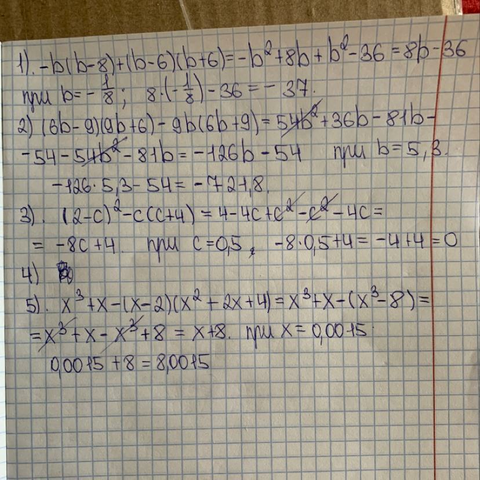 1). -b(b-8)+(b-6)(b+6)=-b²+8b+b²-36=8b-36
при b=-1/8; 8·(-1/8)-36=-37.
2) (6b-9)(9b+6)-9b(6b+9)=54b²+36b-81b-
-54-54b²-81b=-126b-54 при b=5,3.
-126·5,3-54=-721,8.
3). (2-c)²-c(c+4)=4-4c+c²-c²-4c=
=-8c+4. при c=0,5, -8·0,5+4=-4+4=0
4)
5). x³+x-(x-2)(x²+2x+4)=x³+x-(x³-8)=
=x³+x-x³+8=x+8. при x=0,0015.
0,0015+8=8,0015